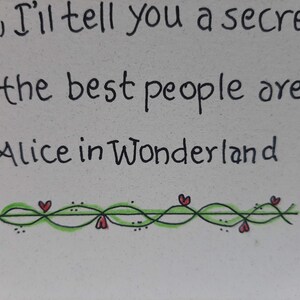 , I'll tell you a secre
the best people are
Alice in Wonderland